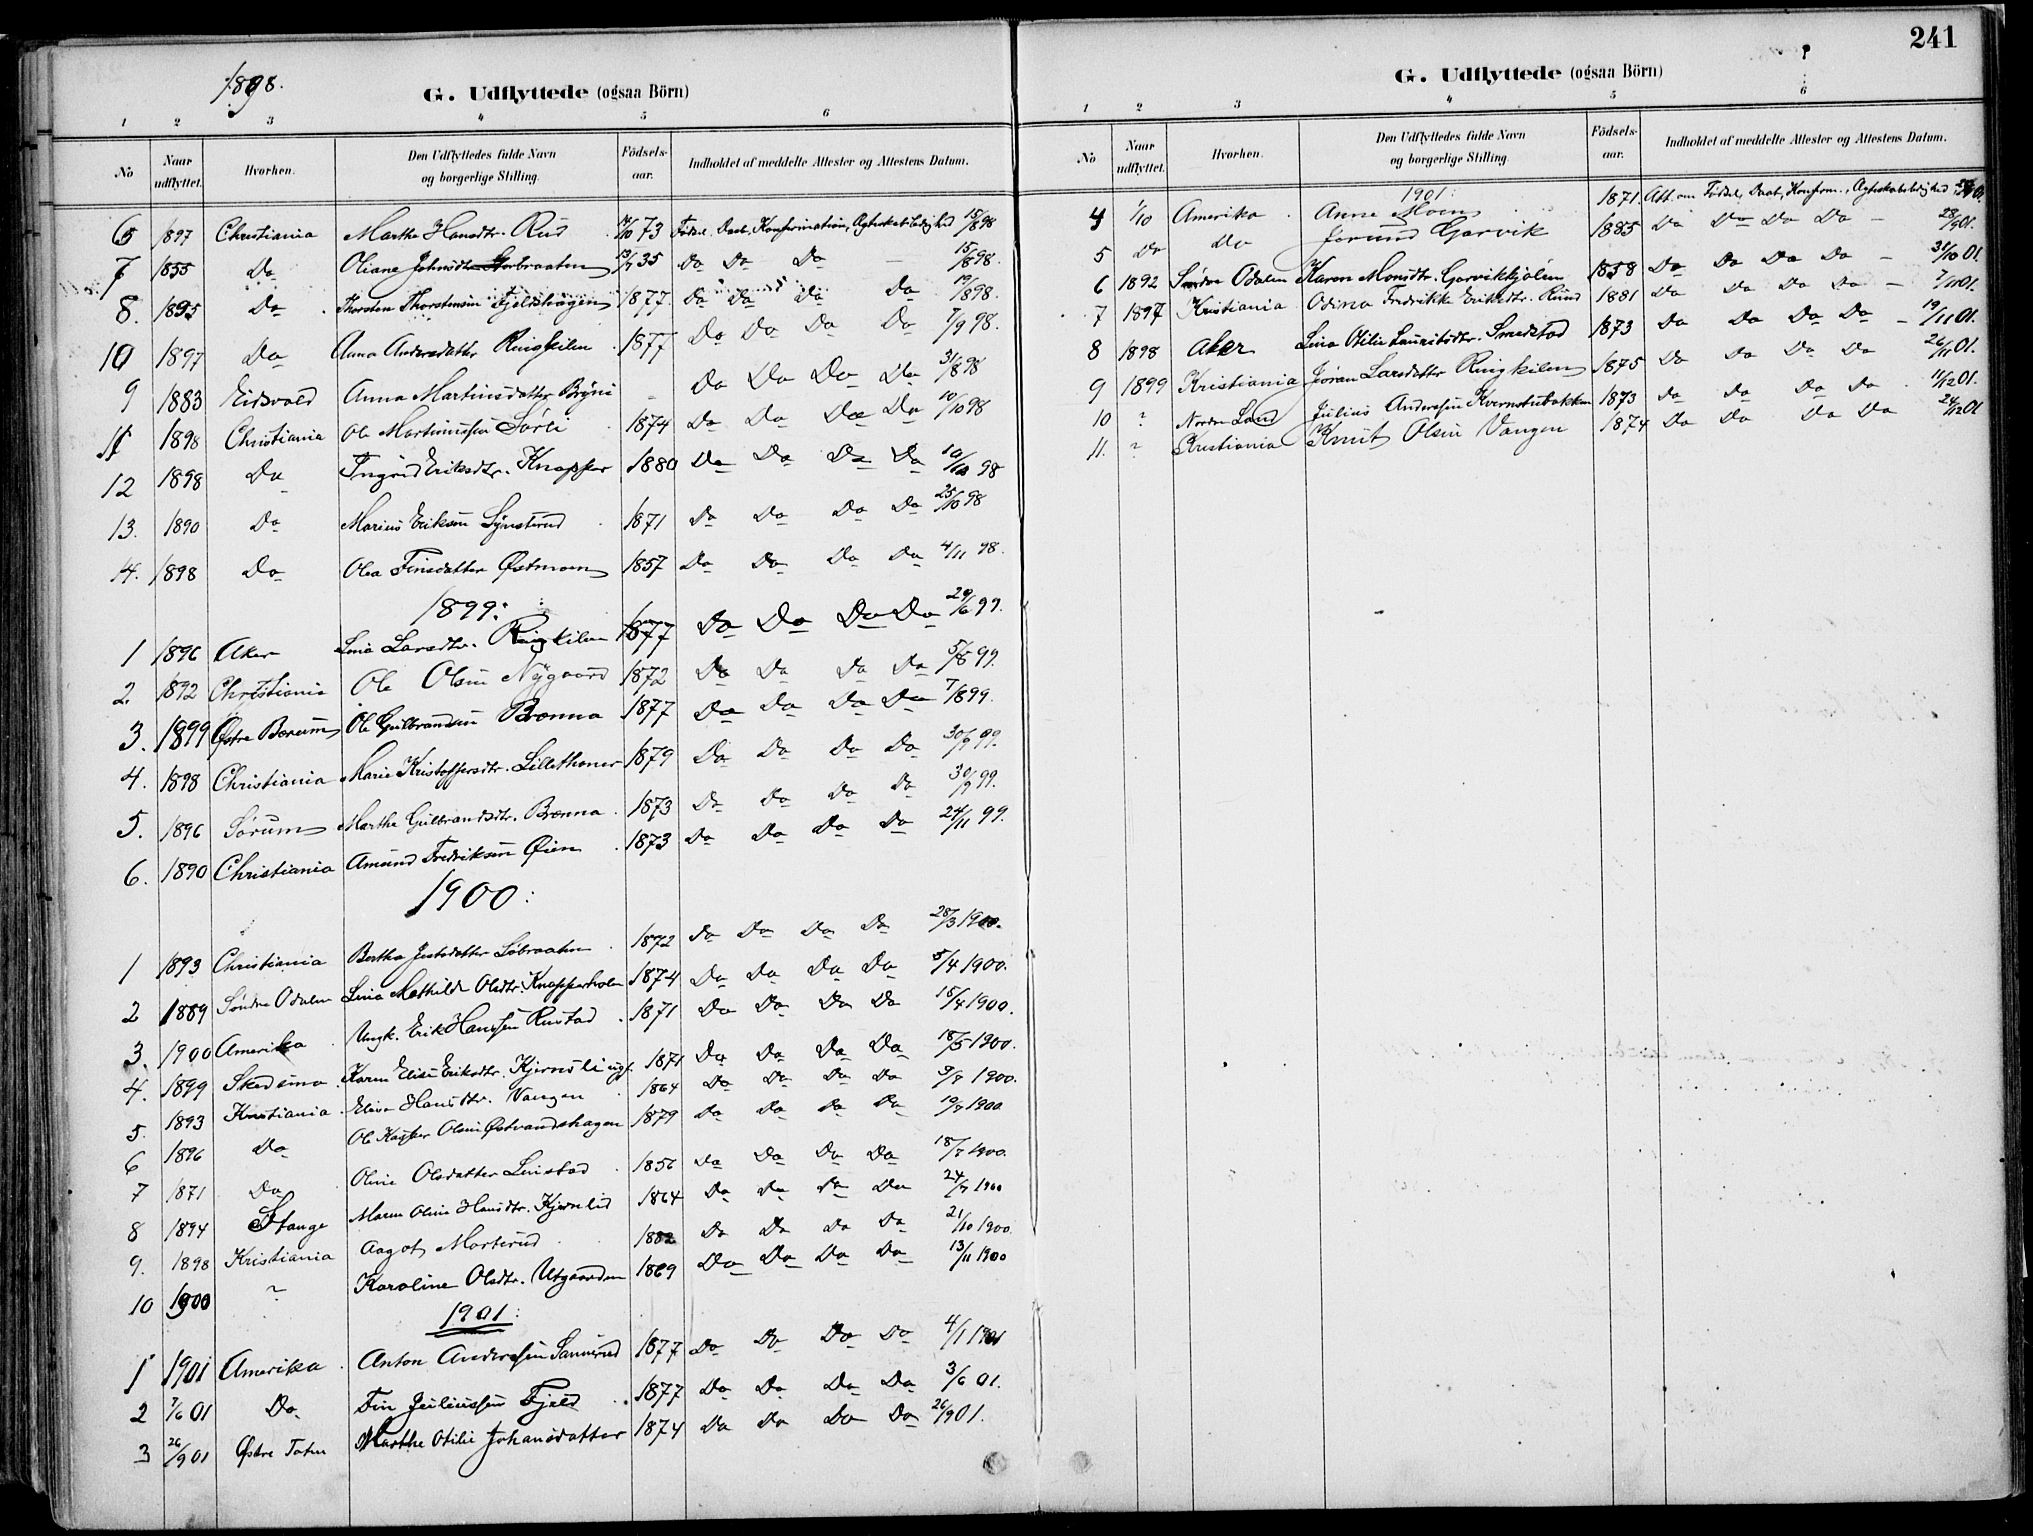 241
1898.
G. Udflyttede (ogsaa Börn)
1 2 3 4 5 6
No Naar udflyttet. Hvorhen. Den Udflyttedes fulde Navn og borgerlige Stilling. Födsels-aar. Indholdet af meddelte Attester og Attestens Datum.
6 1897 Christiania Marthe Hansdtr. Rud 73 Fødsel, Daab, Konfirmation, Ægteskabsledighed 15/8 98
7 1855 Do Oliane Johnsdtr 35 Do Do Do 15/8 98.
8. 1895 Do Thorsten Thorstensen Fjeldshagen 1877 Do Do Do Do 19/8 98.
10 1897 Do Anna Andersdatter Ringkilen 1877 Do Do Do Do 7/9 98.
9 1883 Eidsvold Anna Martinusdatter Do Do Do Do 31/8 98
11 1898 Christiania Ole Martinussen Sørli 1874 Do Do Do Do 10/10 98
12 1898 Do Ingrid Eriksdtr. Knapper 1880 Do Do Do Do 10/10 98
13. 1890 Do Marius Eriksen 1871 Do Do Do Do 25/10 98
14. 1898 Do Olea Finsdatter Østmoen 1857 Do Do Do Do 4/11 98.
1899:
1 1896 Aker Lina Larsdtr. Ringkilen 1877 Do Do Do Do 29/6 99.
2. 1892 Christiania Ole Olsen Nygaard 1872 Do Do Do Do 5/8 99.
3. 1899 Østre Bærum Ole Gulbrandsen Brenna 1877 Do Do Do Do 7/8 99.
4. 1898 Christiania Marie Kristoffersdtr. Lillethoner 1879 Do Do Do Do 30/9 99.
5. 1896 Sørum Marthe Gulbrandsdtr. Brenna. 1873 Do Do Do Do 30/9 99.
6. 1890 Christiania Amund Fredriksen Øien 1873 Do Do Do Do 24/11 99.
1900:
1 1893 Christiania Bertha Justsdatter Løbraaten 1872 Do Do Do Do 28/3 1900.
2 1889 Søndre Odalen Lina Mathilde Olsdtr. Knapperholen 1874 Do Do Do Do 5/4 1900.
3. 1900 Amerika Ungk. Erik Hanssen Rustad 1871 Do Do Do Do 18/4 1900.
4. 1899 Skedsmo Karen Elise Eriksdtr. Kjernsli 1871 Do Do Do Do 18/5 1900.
5. 1893 Kristiania Elise Hansdtr. Vangen 1864 Do Do Do Do 9/7 1900.
6 1896 Do Ole Kasper Olsen Østvandshagen 1879 Do Do Do Do 10/7 1900
7 1871 Do Oline Olsdatter Linstad 1856 Do Do Do Do 18/7 1900.
8 1894 Stange Maren Oline Hansdtr. Kjernlid 1864 Do Do Do Do 24/7 1900
9. 1898 Kristiania Aagot Morterud 1882 Do Do Do Do 21/10 1900.
10 1900 " Karoline Olsdtr. Utgaarden 1869 Do Do Do Do 13/11 1900
1901:
1 1901 Amerika Anton Anderssen Sannerud 1877 Do Do Do Do 4/1 1901
2 7/6 01 Do Fin Juliussen Fjeld 1877 Do Do Do Do 3/6 01.
3 26/9 01 Østre Toten Marthe Otilie Johansdatter 1874 Do Do Do Do 26/9 01.
G. Udflyttede (ogsaa Börn)
1 2 3 4 5 6
No Naar udflyttet. Hvorhen. Den Udflyttedes fulde Navn og borgerlige Stilling. Födsels-aar. Indholdet af meddelte Attester og Attestens Datum.
1901:
4 1/10 Amerika Anne Moen 1871 Att. om Fødsel, Daab, Konfirm., Ægteskabsledighed
5 Do Do Jørund Garvik 1885 Do Do Do Do 28/9 01.
6 1892 Søndre Odalen Karen Monsdtr. Garvikhjølen 1858 Do Do Do Do 31/10 01.
7 1897 Kristiania Odina Fredrikke Eriksdtr. Rund 1881 Do Do Do Do 7/11 01.
8 1898 Aker Lina Otilie Lauritsdtr. Smedstad 1873 Do Do Do Do 19/11 01.
9 1899 Kristiania Jøran Larsdatter Ringkilen 1875 Do Do Do Do 26/11 01.
10 ? Nordre Land Julius Anderssen Kvernstubakken 1873 Do Do Do Do 11/12 01.
11. " Kristiania Knut Olsen Vangen 1874 Do Do Do Do 24/12 01